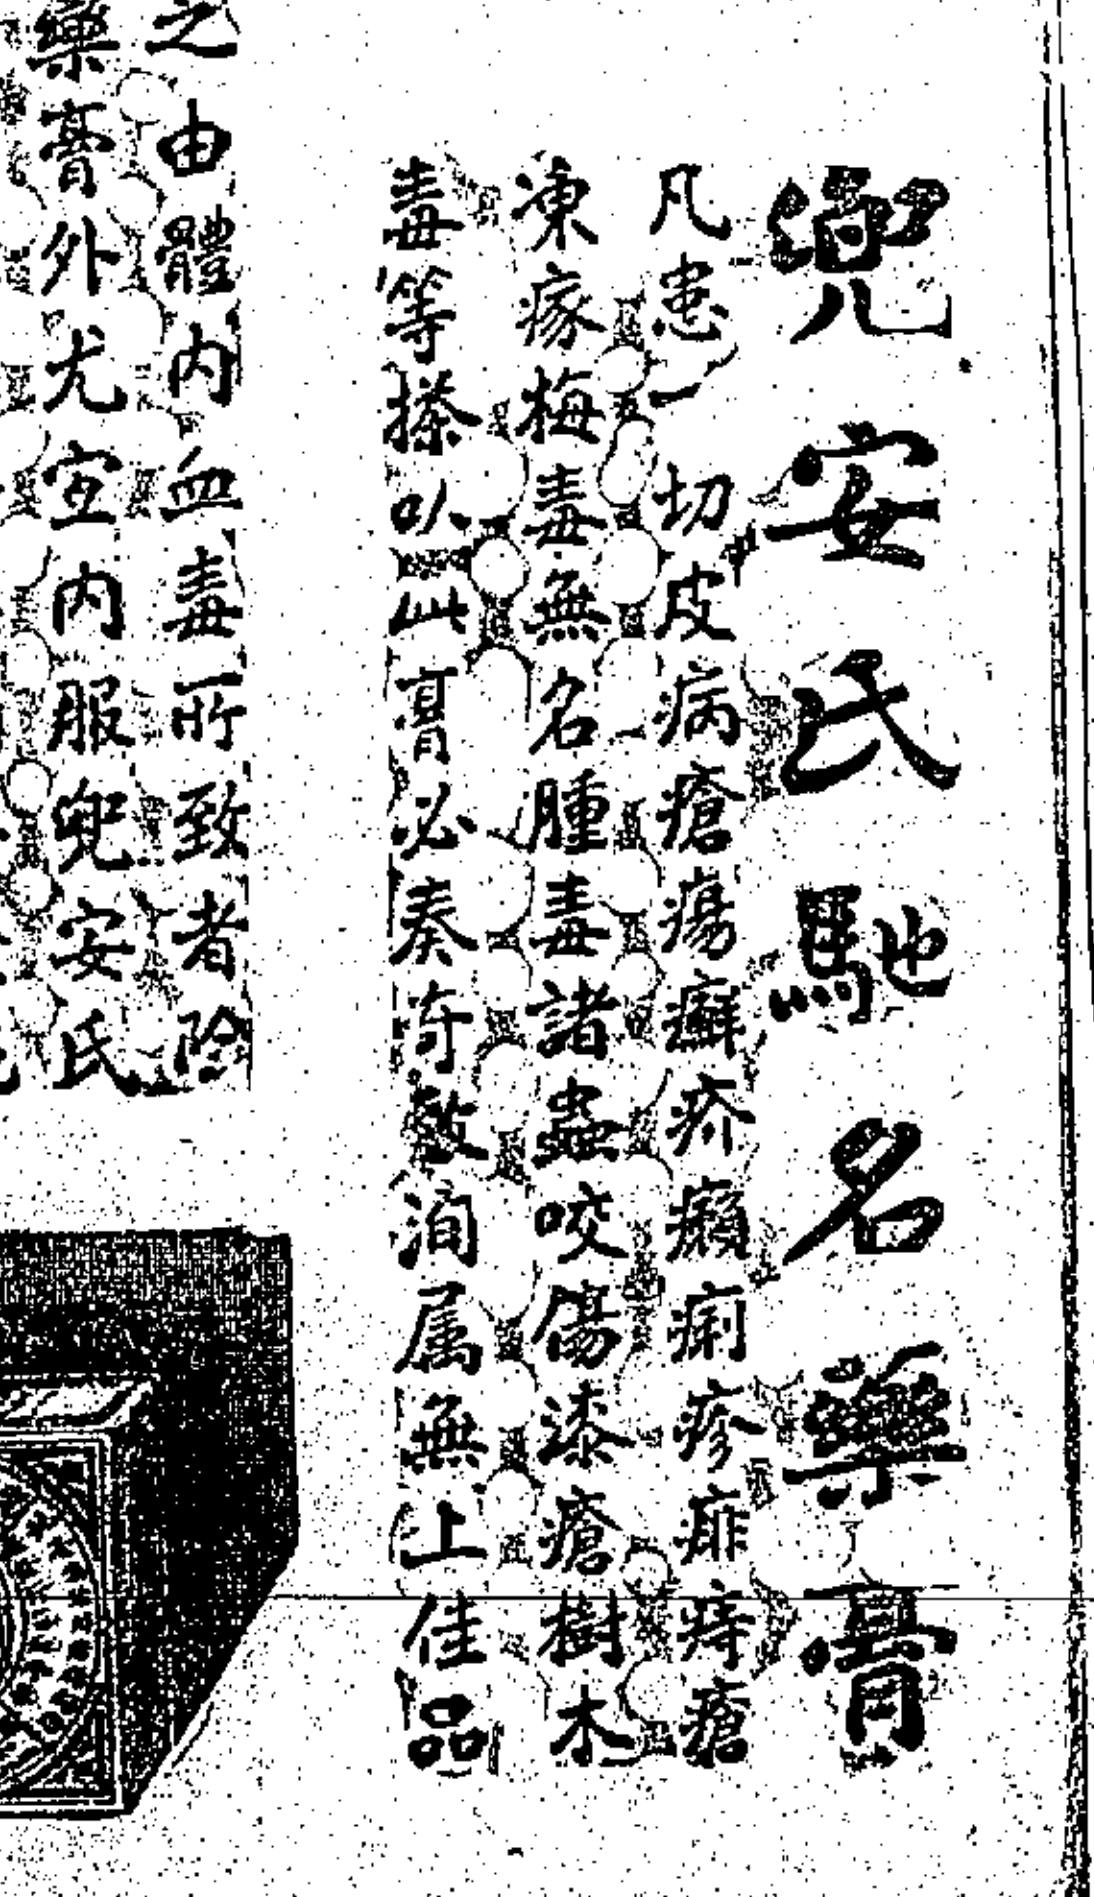 兜安氏馳名藥膏
凡患一切皮病瘡瘍癬疥癩痢疹痱痔瘡
凍瘃梅毒無名腫毒諸蟲咬傷漆瘡樹木
毒等搽以此膏必奏奇效洵属無上佳品
之由體內血毒所致者除
藥膏外尤宜内服兜安氏